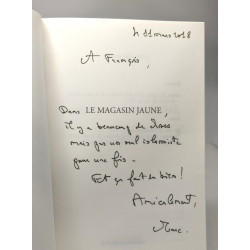 11 mars 2018
A François,
Dans LE MAGASIN JAUNE
il y a beaucoup de
mais pas un seul islamiste
pour une fois.
Et ça fait du bien !
Amicalement,
Marc